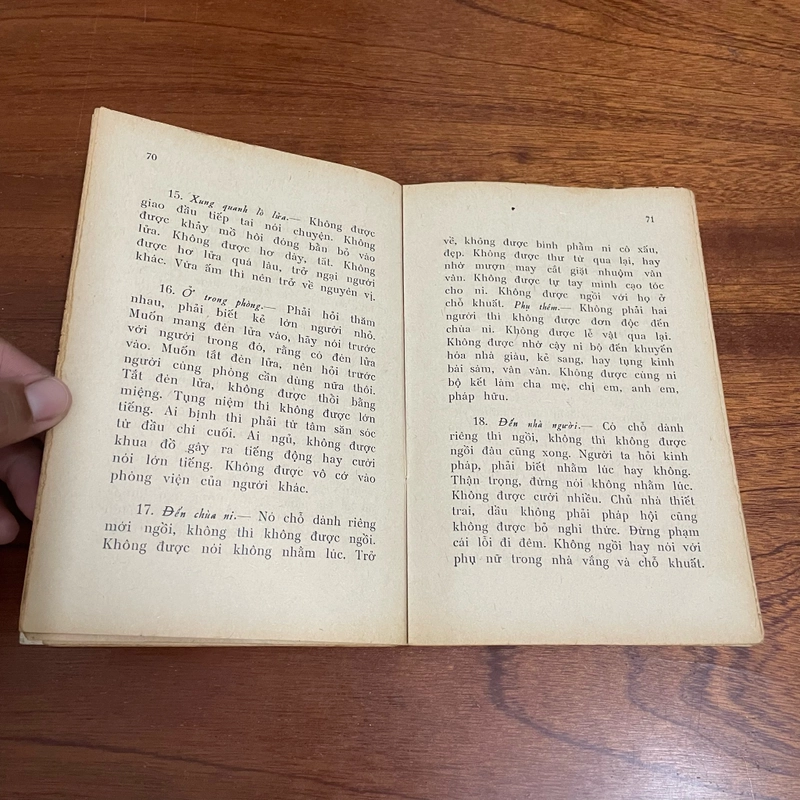 70
15. Xung quanh lò lửa.— Không được
giao đầu tiếp tai nói chuyện. Không
được khảy mồ hôi đóng bẳn bỏ vào
lửa. Không được hơ dày, tất. Không
được hơ lửa quá lâu, trở ngại người
khác. Vừa ấm thì nên trở về nguyên vị.
16. Ở trong phòng.— Phải hỏi thăm
nhau, phải biết kẻ lớn người nhỏ.
Muốn mang đèn lửa vào, hãy nói trước
với người trong đó, rằng có đèn lửa
vào. Muốn tắt đèn lửa, nên hỏi trước
người cùng phòng cần dùng nữa thôi.
Tắt đèn lửa, không được thổi bằng
miệng. Tụng niệm thì không được lớn
tiếng. Ai bịnh thì phải từ tâm săn sóc
từ đầu chí cuối. Ai ngủ, không được
khua đồ gây ra tiếng động hay cười
nói lớn tiếng. Không được vô cớ vào
phòng viện của người khác.
17. Đến chùa ni.— Nó chỗ dành riêng
mới ngồi, không thì không được ngồi.
Không được nói không nhằm lúc. Trở
71
về, không được bình phẩm ni cô xấu,
đẹp. Không được thư từ qua lại, hay
nhờ mượn may cắt giặt nhuộm vân
vân. Không được tự tay mình cạo tóc
cho ni. Không được ngồi với họ ở
chỗ khuất. Phụ thêm.— Không phải hai
người thì không được đơn độc đến
chùa ni. Không được lễ vật qua lại.
Không được nhờ cậy ni bộ đến khuyến
hóa nhà giàu, kẻ sang, hay tụng kinh
bái sám, vân vân. Không được cùng ni
bộ kết làm cha mẹ, chị em, anh em,
pháp hữu.
18. Đến nhà người.— Có chỗ dành
riêng thì ngồi, không thì không được
ngồi đâu cũng xong. Người ta hỏi kinh
pháp, phải biết nhằm lúc hay không.
Thận trọng, đừng nói không nhằm lúc.
Không được cười nhiều. Chủ nhà thiết
trai, dầu không phải pháp hội cũng
không được bỏ nghi thức. Đừng phạm
cái lỗi đi đêm. Không ngồi hay nói với
phụ nữ trong nhà vắng và chỗ khuất.